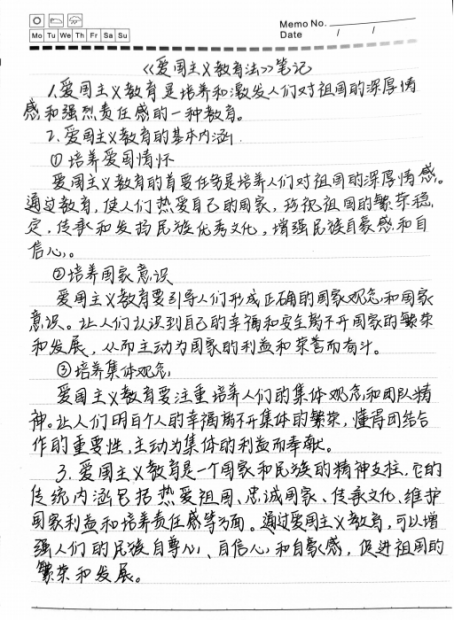 Memo No.
Mo Tu We Th Fr Sa Su
Date / /
《爱国主义教育法》笔记
1.爱国主义教育是培养和激发人们对祖国的深厚情
感和强烈责任感的一种教育。
2.爱国主义教育的基本内涵.
①培养爱国情怀
爱国主义教育的首要任务是培养人们对祖国的深厚情感。
通过教育,使人们热爱自己的国家,珍视祖国的繁荣稳
定,传承和发扬民族优秀文化,增强民族自豪感和自
信心。
②培养国家意识
爱国主义教育要引导人们形成正确的国家观念和国家
意识。让人们认识到自己的幸福和安全离不开国家的繁荣
和发展,从而主动为国家的利益和荣誉而奋斗。
③培养集体观念
爱国主义教育要注重培养人们的集体观念和团队精
神。让人们明白个人的幸福离不开集体的繁荣,懂得团结合
作的重要性,主动为集体的利益而奉献。
3.爱国主义教育是一个国家和民族的精神支柱,它的
传统内涵包括热爱祖国、忠诚国家、传承文化、维护
国家利益和培养责任感等方面。通过爱国主义教育,可以增
强人们的民族自尊心、自信心和自豪感,促进祖国的
繁荣和发展。